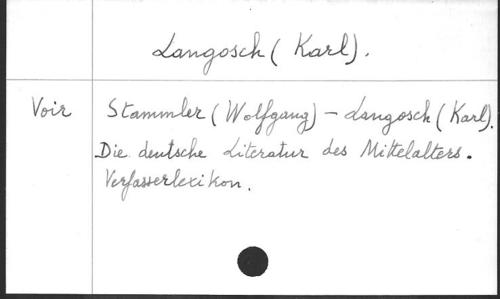 Langosch (Karl).
Voir Stammler (Wolfgang) - Langosch (Karl).
Die deutsche Literatur des Mittelalters.
Verfasserlexikon.